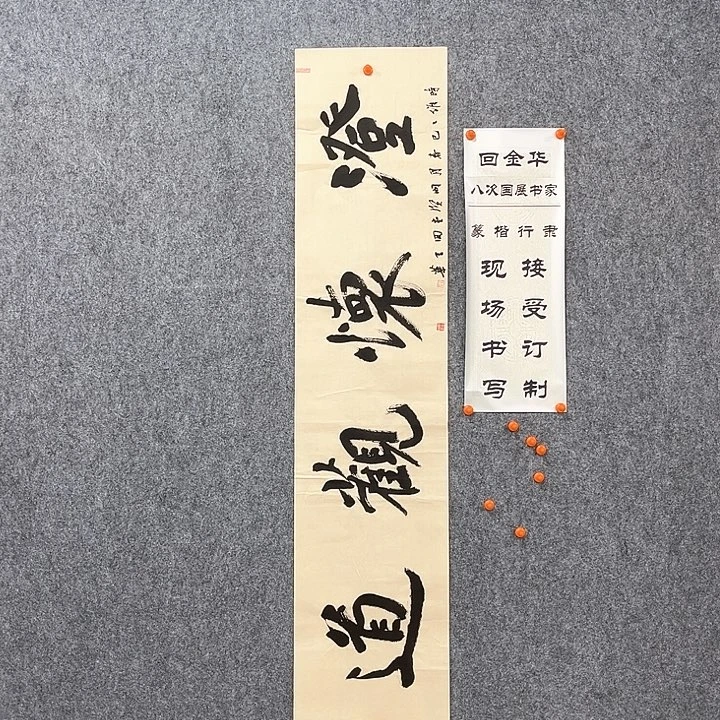 澄懷觀道
回金华
八次国展书家
篆楷行隶
现场书写
接受订制